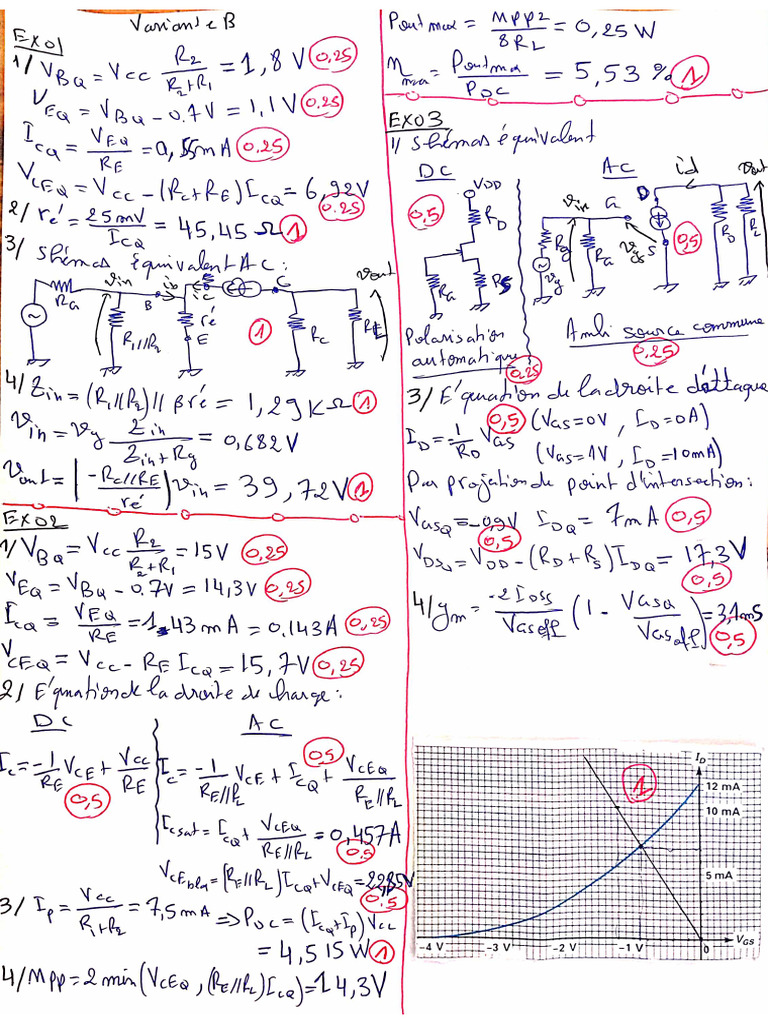 Variante B
EX01
1/ VBQ = Vcc R2/(R2+R1) = 1,8 V (0,25)
VEQ = VBQ - 0.7V = 1,1V (0.25)
ICQ = VEQ/RE = 0,55mA (0,25)
VCEQ = Vcc - (Rc+RE)ICQ = 6,92V (0.25)
2/ ré = 25mV/ICQ = 45,45 Ω (1)
3/ Shémas équivalent AC:
vin vout
RG B ib ic C
R1//R2 ré E (1) Rc
4/ Zin = (R1//R2)//βré = 1,29KΩ (1)
vin = vg Zin/(Zin+Rg) = 0,682V
vout = |-Rc//RE/ré| vin = 39,72V (1)
EX02
1/ VBQ = Vcc R2/(R2+R1) = 15V (0,25)
VEQ = VBQ - 0.7V = 14,3V (0,25)
ICQ = VEQ/RE = 143mA = 0,143A (0,25)
VCEQ = Vcc - RE ICQ = 15,7V (0,25)
2/ E'quation de la droite de charge:
DC AC
Ic = -1/RE VCE + Vcc/RE (0,5)
Ic = -1/(RE//RL) VCE + ICQ + VCEQ/(RE//RL) (0,5)
Icsat = ICQ + VCEQ/(RE//RL) = 0,457A (0.5)
VCEblq = (RE//RL)ICQ + VCEQ = 22,85V (0.5)
3/ Ip = Vcc/(R1+R2) = 7,5mA => PDC = (ICQ+Ip)Vcc
= 4,515W (1)
4/ MPP = 2 min(VCEQ, (RE//RL)ICQ) = 14,3V
Pout max = MPP2/8RL = 0,25W
η max = Pout max/PDC = 5,53 % (1)
EX03
1/ Shémas équivalent
DC AC
VDD (0,5) RD RG RS
vin G D id vout
Rg RG vgs S (0,5) RD RL
vg
Polarisation
automatique (0.25)
Ambli source commune
(0.25)
3/ E'quation de la droite d'attaque
(0,5) (VGS=0V, ID=0A)
ID = -1/RD VGS
(VGS=1V, ID=10mA)
Par projation de point d'intersection:
VGSQ = -0,9V (0,5) IDQ = 7mA (0,5)
VDSQ = VDD - (RD+RS)IDQ = 17,3V
(0,5)
4/ gm = -2IDSS/VGSoff (1 - VGSQ/VGSoff) = 3,1mS
(0.5)
(1) ID
12 mA
10 mA
5 mA
-4 V -3 V -2 V -1 V 0 VGS